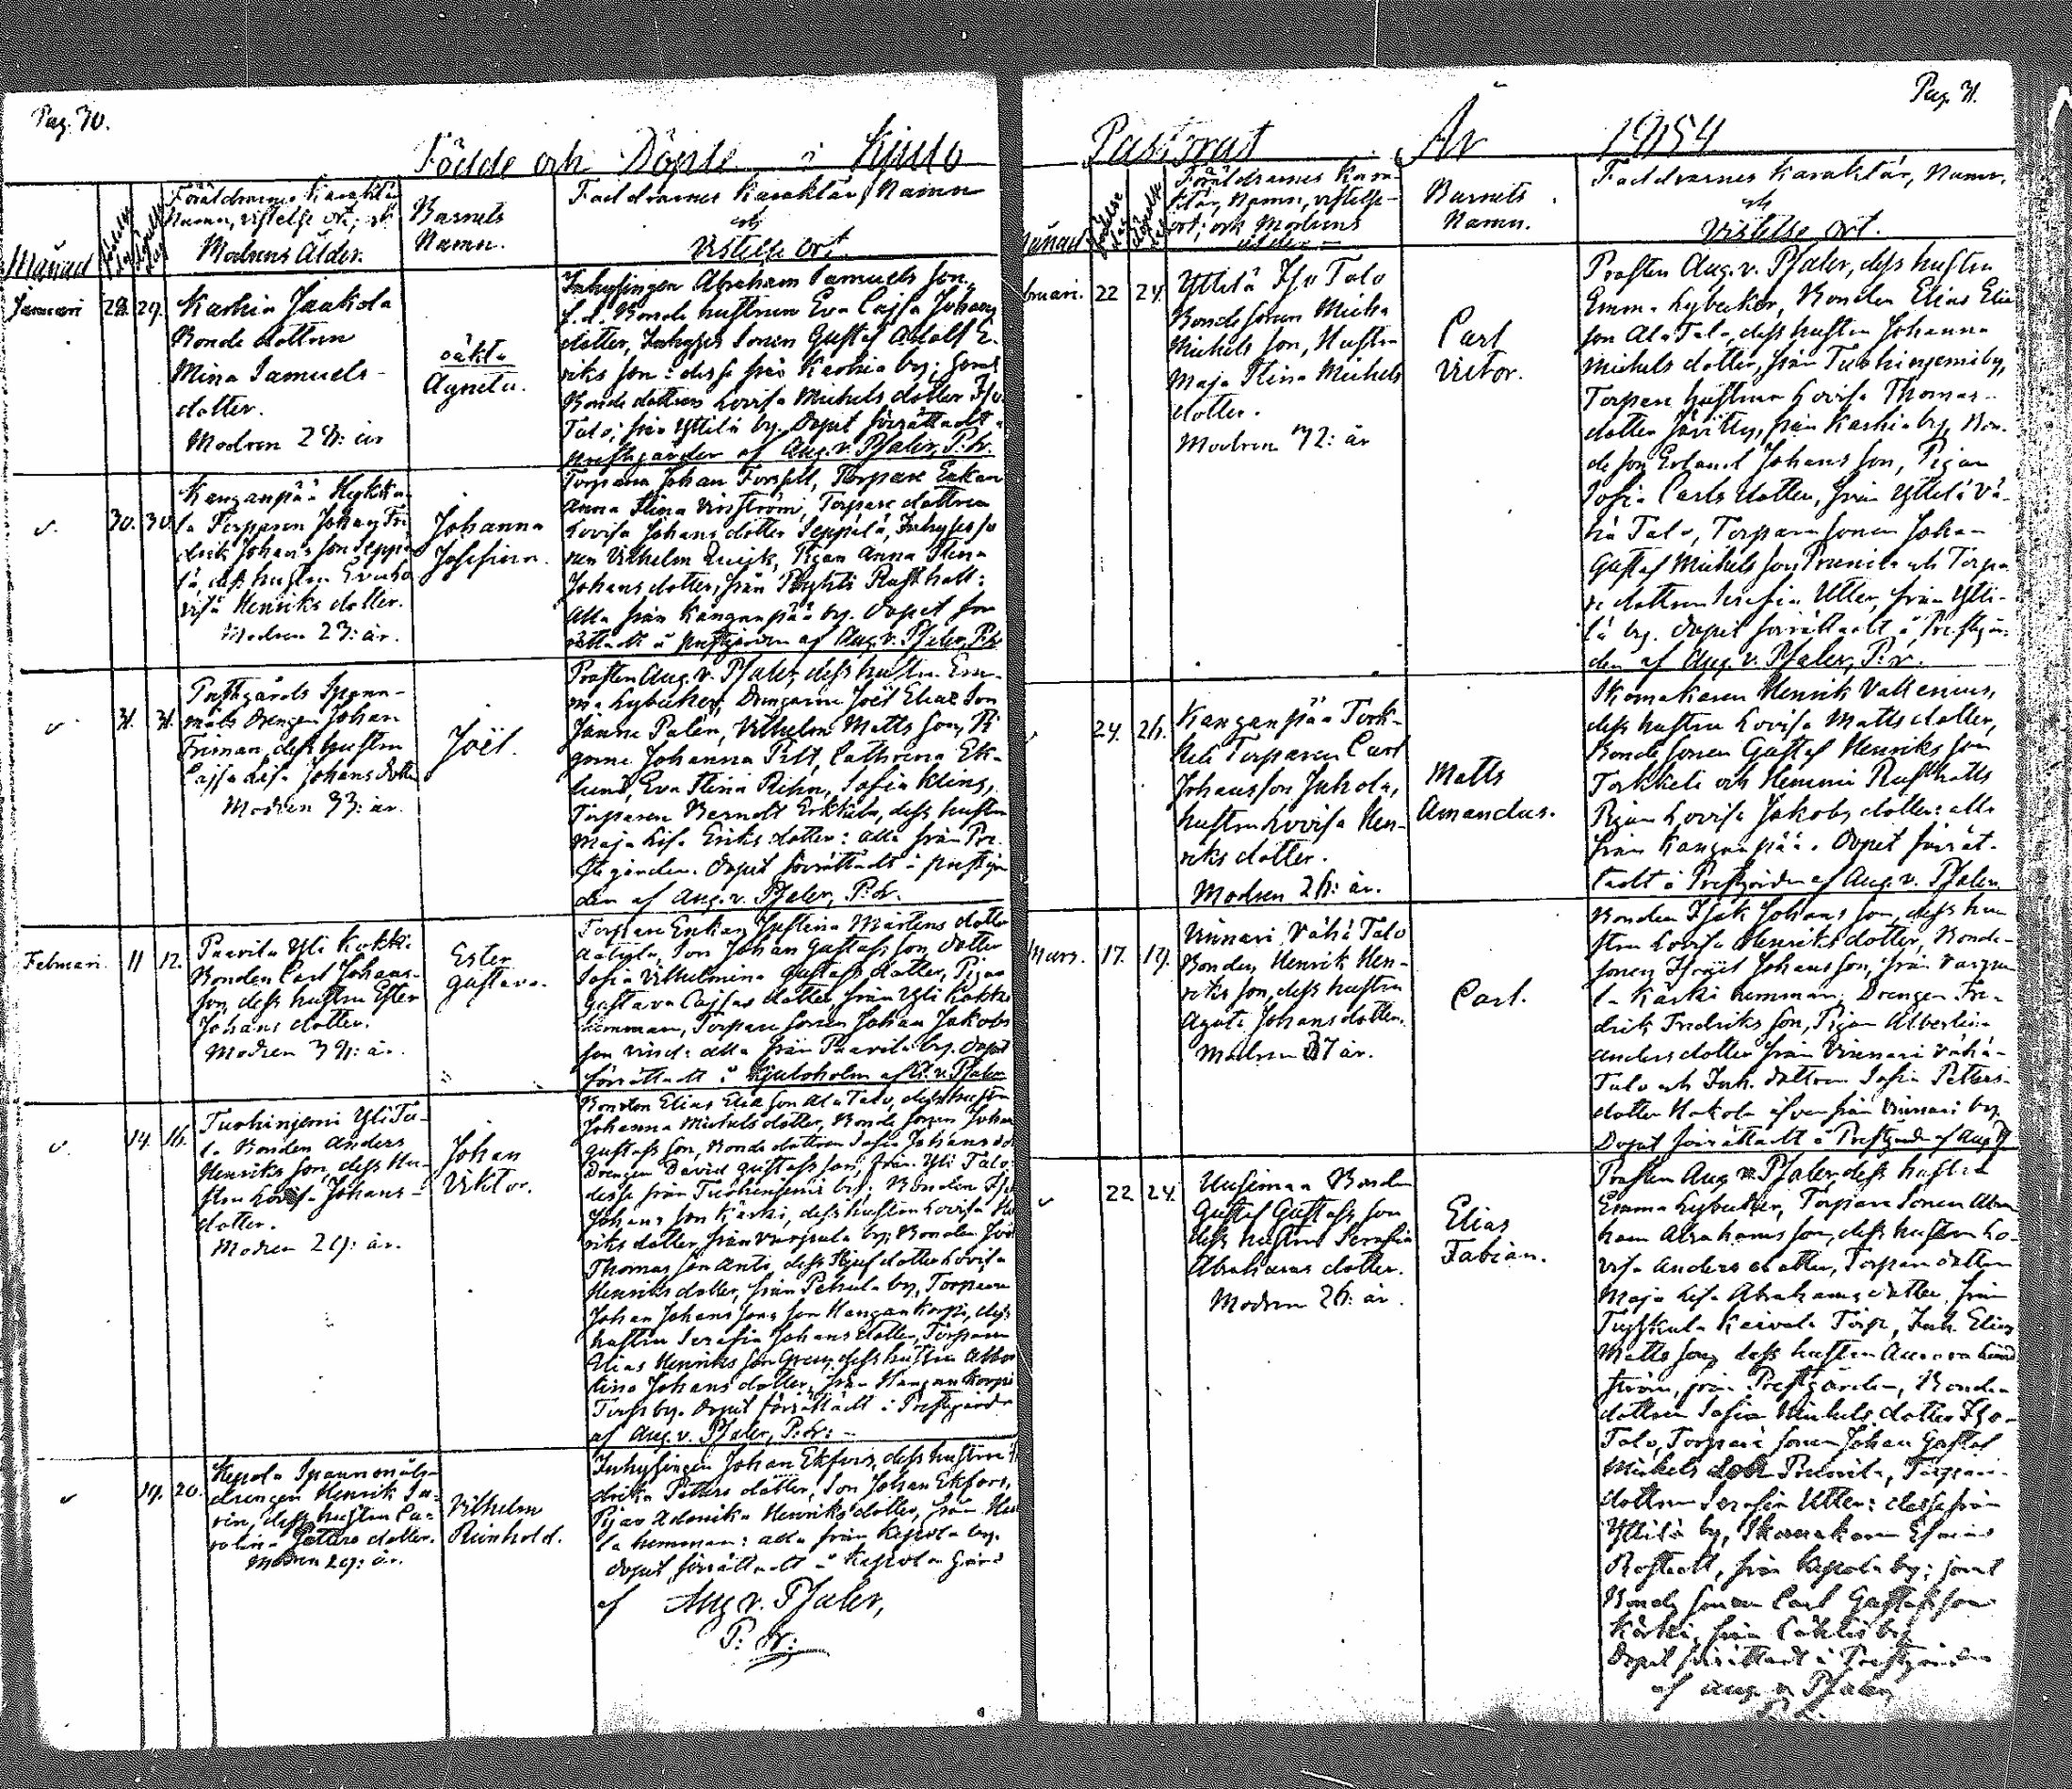 Pag. 30.
Födde och Döpte i Kjulo
Månad
Födelse dag
Döpelse dag
Föräldrarnes Karaktär
Namn, vistelse ort, och
Modrens Ålder.
Barnets
Namn.
Faddrarnes Karaktär, Namn
och
Vistelse Ort.
Januari
28. 29.
Karhia Jaakola
Bonde dottren
Mina Samuels
dotter.
Modren 28: år
oäkta
Agneta.
Inhysingen Abraham Samuels son,
f.d. Bonde hustrun Eva Cajsa Johans
dotter, Inhyses Sonen Gustaf Adolf E-
riks son: dessa från Karhia by; samt
Bonde dottren Lovisa Michels dotter Iso
Talo, från Yttilä by. Dopet förrättadt i
prestgården af Aug. v. Pfaler, P: hr.
30. 30.
Kanganpää
la Torparen Johan Fri
drik Johans son Seppä
lä, dess hustru Eva Lo
visa Henriks dotter.
Modren 23: år.
Johanna
Josefina.
Torparen Johan Forsell, Torpare Enkan
Anna Stina Vinström, Torpare dottren
Lovisa Johans dotter Seppälä, Inhyses so
nen Vilhelm Qvick, Pigan Anna Stina
Johans dotter, från Pöyhti Rusthåll:
Alla från Kanganpää by. Dopet för
rättadt i prestgården af Aug. v. Pfaler, P: hr
31. 31.
Prestgårds Spann-
måls Drengen Johan
Friman, dess hustru
Cajsa Lisa Johans dotter
Modren 33: år.
Joël.
Prosten Aug. v. Pfaler, dess hustru Em-
ma Lybecker, Drengarne Joël Elias Son
Janne Palén, Vilhelm Matts son, Pi
gorne Johanna Pilt, Cathrina Ek-
lund, Eva Stina Rihn, Sofia Klins,
Torparen Berndt Erkkilä, dess hustru
Maja Lisa Eriks dotter: alla från Pre-
stgården. Dopet förrättadt i prestgår
den af Aug. v. Pfaler, P: hr.
Februari.
11 12.
Paavila Yli Kokki
Bonden Carl Johans-
son, dess hustru Ester
Johans dotter.
Modren 39: år.
Ester
Gustava.
Torpare Enkan Justina Mårtens dotter
Son Johan Gustafs son, dotter
Sofia Vilhelmina Gustafs dotter, Pigan
Gustava Cajsas dotter, från Yli Kokki
hemman, Torpare sonen Johan Jakobs
son Vind: alla från Paavila by. Dopet
förrättadt i Kjuloholm af A. v. Pfaler
14. 16.
Tuohiniemi Yli Ta-
lo Bonden Anders
Henriks son, dess hu-
stru Lovisa Johans-
dotter.
Modren 29: år.
Johan
Viktor.
Bonden Elias Elia son Ala Talo, dess hustru
Johanna Michels dotter, Bonde Sonen Johan
Gustafs son, Bonde dottren Sofia Johans do
Drengen David Gustafs son, från Yli Talo:
dessa från Tuohiniemi by; Bonden Isak
Johans son Kärki, dess hustru Lovisa Hen
riks dotter, från Vurpula by; Bonden
Thomas son Anti, dess Styf dotter Lovisa
Henriks dotter, från Pehula by, Torparen
Johan Johans son Hangan Korpi, dess
hustru Serafia Johans dotter, Torparen
Elias Henriks son Gren, dess hustru Alber
tina Johans dotter, från Hangan Korpi
Torp by. Dopet förrättadt i Prestgården
af Aug. v. Pfaler, P: hr:
19. 20.
Kepola Spannmåls-
drengen Henrik
dess hustru Ca-
rolina Petters dotter.
Modren 29: år.
Vilhelm
Reinhold.
Inhysingen Johan Ekfors, dess hustru
drika Petters dotter, Son Johan Ekfors,
Pigan Henriks dotter, från
la hemman: alla från Kepola by.
Dopet förrättadt i Kepola Gård
af Aug. v. Pfaler,
P: hr:
Pag. 31.
Pastorat År 1854
Månad
Födelse dag
Döpelse dag
Föräldrarnes Karak-
tär, Namn, vistelse-
ort, och Modrens
ålder
Barnets
Namn.
Faddrarnes Karaktär, Namn,
och
Vistelse Ort.
bruari.
22 24.
Yttilä Iso Talo
Bonde sonen Micha
Michels son, Hustru
Maja Stina Michels
dotter.
Modren 32: år
Carl
Victor.
Prosten Aug. v. Pfaler, dess hustru
Emma Lybecker, Bonden Elias Elia
son Ala Talo, dess hustru Johanna
Michels dotter, från Tuohiniemi by,
Torpare hustrun Lovisa Thomas-
dotter från Karhia by, Bon-
de son Erland Johans son, Pigan
Sofia Carls dotter, från Yttilä Vä-
hä Talo, Torpare sonen Johan
Gustaf Michels son och Torpa-
re dottren Serafia Utter, från Ytti-
lä by. Dopet förrättadt i Prestgår-
den af Aug. v. Pfaler, P: r.
24. 26.
Kanganpää Tork-
keli Torparen Carl
Johansson Juhola,
hustru Lovisa Hen-
riks dotter.
Modren 26: år.
Matts
Amandus.
Skomakaren Henrik Vallenius,
dess hustru Lovisa Matts dotter,
Bonde sonen Gustaf Henriks son
Torkkeli och Hemmi Rusthålls
Pigan Lovisa Jakobs dotter: alla
från Kanganpää. Dopet förrät-
tadt i Prestgården af Aug. v. Pfaler
Mars.
17. 19.
Vinnari Vähä Talo
Bonden Henrik Hen-
riks son, dess hustru
Agata Johans dotter.
Modren 37 år.
Carl.
Bonden Isak Johans son, dess hu-
stru Lovisa Henriks dotter, Bonde-
sonen Johans son, från Vurpu
la Kärki hemman; Drengen Fre-
drik Fredriks son, Pigan Albertina
Anders dotter från Vinnari Vähä-
Talo och Inh. dottren Sofia Petters-
dotter Hakola äfven från Vinnari by.
Dopet förrättadt i Prestgården af Aug. P
22 24.
Uusimaa Bonden
Gustaf Gustafs son
dess hustru Serafia
Abrahams dotter.
Modren 26: år.
Elias
Fabian.
Prosten Aug. v. Pfaler, dess hustru
Emma Lybecker, Torpare Sonen Abra
ham Abrahams son, dess hustru Lo-
visa Anders dotter, Torpare dottren
Maja Lisa Abrahams dotter, från
Torp, Inh. Elias
Matts son, dess hustru
ström, från Prestgården, Bonde
dottren Sofia Michels dotter Iso-
Talo, Torpare sonen Johan Gustaf
Michels
dottren Serafia Utter: dessa från
Yttilä by, Skomakaren
från Kepola by; samt
Bonde sonen Carl Gustafs son
Kärki, från by
Dopet förrättadt i Prestgården
af Aug. v. Pfaler